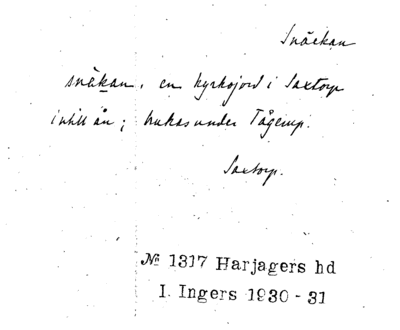 Snäckan
snäkan, en kyrkojord i Saxtorp
intill ån; brukas under Tågerup.
Saxtorp.
№ 1317 Harjagers hd
I. Ingers 1930 - 31